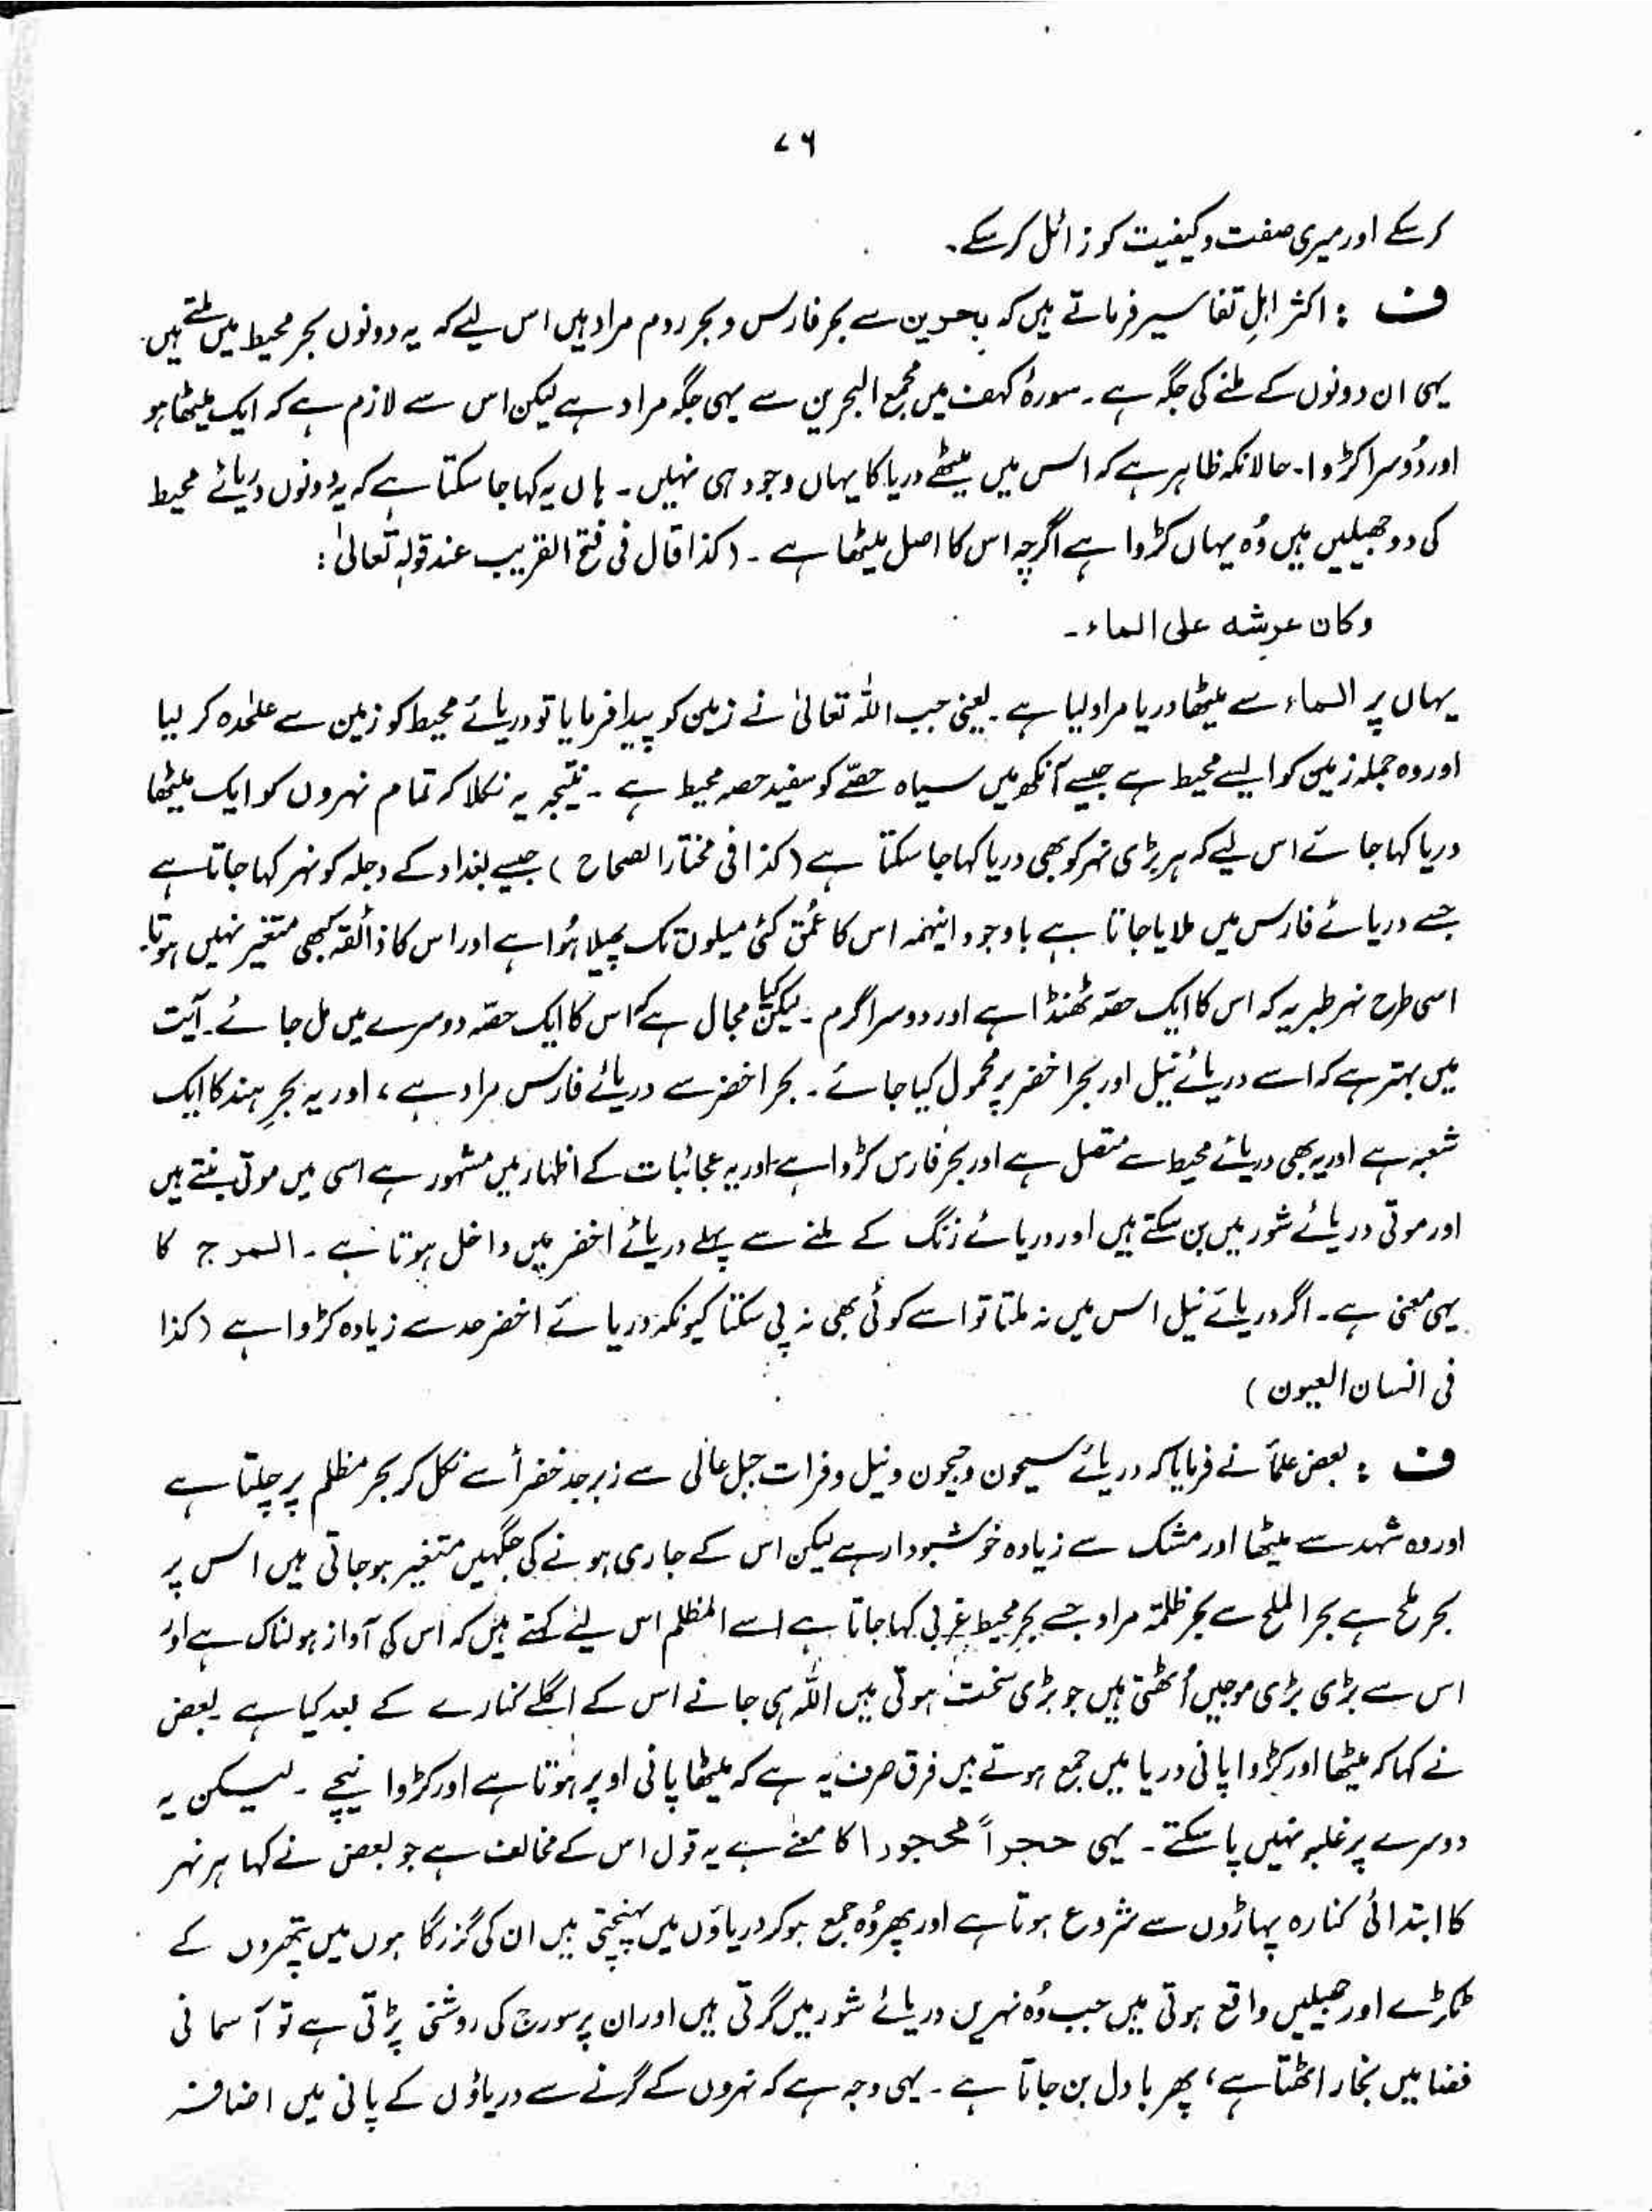 ۷۶
کرسکے اور میری صفت و کیفیت کو زائل کرسکے۔
ف : اکثر اہلِ تفاسیر فرماتے ہیں کہ بحرین سے بحر فارس و بحر روم مراد ہیں اس لیے کہ یہ دونوں بحر محیط میں ملتے ہیں۔
یہی ان دونوں کے ملنے کی جگہ ہے۔ سورۂ کہف میں مجمع البحرین سے یہی جگہ مراد ہے لیکن اس سے لازم ہے کہ ایک میٹھا ہو
اور دُوسرا کڑوا۔ حالانکہ ظاہر ہے کہ اس میں میٹھے دریا کا یہاں وجود ہی نہیں۔ ہاں یہ کہا جا سکتا ہے کہ یہ دونوں دریائے محیط
کی دو جھیلیں ہیں وُہ یہاں کڑوا ہے اگرچہ اس کا اصل میٹھا ہے۔ (کذا قال فی فتح القریب عند قولہٖ تعالیٰ :
وکان عرشه علی الماء۔
یہاں پر الماء سے میٹھا دریا مراد لیا ہے۔ یعنی جب اللہ تعالیٰ نے زمین کو پیدا فرمایا تو دریائے محیط کو زمین سے علٰحدہ کر لیا
اور وہ جملہ زمین کو ایسے محیط ہے جیسے آنکھ میں سیاہ حصّے کو سفید حصہ محیط ہے۔ نتیجہ یہ نکلا کہ تمام نہروں کو ایک میٹھا
دریا کہا جائے اس لیے کہ ہر بڑی نہر کو بھی دریا کہا جا سکتا ہے (کذا فی مختار الصحاح) جیسے بغداد کے دجلہ کو نہر کہا جاتا ہے
جسے دریائے فارس میں ملایا جاتا ہے باوجود اینہمہ اس کا عُمق کئی میلوں تک پھیلا ہُوا ہے اور اس کا ذائقہ کبھی متغیر نہیں ہوتا۔
اسی طرح نہر طبریہ کہ اس کا ایک حصّہ ٹھنڈا ہے اور دوسرا گرم۔ لیکن کیا مجال ہے کہ اس کا ایک حصّہ دوسرے میں مل جائے۔ آیت
میں بہتر ہے کہ اسے دریائے نیل اور بحر اخضر پر محمول کیا جائے۔ بحر اخضر سے دریائے فارس مراد ہے، اور یہ بحرِ ہند کا ایک
شعبہ ہے اور یہ بھی دریائے محیط سے متصل ہے اور بحر فارس کڑوا ہے اور یہ عجائبات کے اظہار میں مشہور ہے اسی میں موتی بنتے ہیں
اور موتی دریائے شور میں بن سکتے ہیں اور دریائے زنگ کے ملنے سے پہلے دریائے اخضر میں داخل ہوتا ہے۔ المرج کا
یہی معنی ہے۔ اگر دریائے نیل اس میں نہ ملتا تو اسے کوئی بھی نہ پی سکتا کیونکہ دریائے اخضر حد سے زیادہ کڑوا ہے (کذا
فی انسان العیون)
ف : بعض علماء نے فرمایا کہ دریائے سیحون و جیحون و نیل و فرات جبل عالی سے زبرجد خضرأ سے نکل کر بحر مظلم پر چلتا ہے
اور وہ شہد سے میٹھا اور مشک سے زیادہ خوشبودار ہے لیکن اس کے جاری ہونے کی جگہیں متغیر ہوجاتی ہیں اس پر
بحر ملح ہے بحر الملح سے بحر ظلمۃ مراد جسے بحرِ محیط غربی کہا جاتا ہے اسے المظلم اس لیے کہتے ہیں کہ اس کی آواز ہولناک ہے اور
اس سے بڑی بڑی موجیں اُٹھتی ہیں جو بڑی سخت ہوتی ہیں اللہ ہی جانے اس کے اگلے کنارے کے بعد کیا ہے۔ بعض
نے کہا کہ میٹھا اور کڑوا پانی دریا میں جمع ہوتے ہیں فرق صرف یہ ہے کہ میٹھا پانی اوپر ہوتا ہے اور کڑوا نیچے۔ لیکن یہ
دوسرے پر غلبہ نہیں پا سکتے۔ یہی حجراً محجورا کا معنٰے ہے یہ قول اس کے مخالف ہے جو بعض نے کہا ہر نہر
کا ابتدائی کنارہ پہاڑوں سے شروع ہوتا ہے اور پھر وُہ جمع ہوکر دریاؤں میں پہنچتی ہیں ان کی گزرگاہوں میں پتھروں کے
ٹکڑے اور جھیلیں واقع ہوتی ہیں جب وُہ نہریں دریائے شور میں گرتی ہیں اور ان پر سورج کی روشنی پڑتی ہے تو آسمانی
فضا میں بخار اٹھتا ہے، پھر بادل بن جاتا ہے۔ یہی وجہ ہے کہ نہروں کے گرنے سے دریاؤں کے پانی میں اضافہ